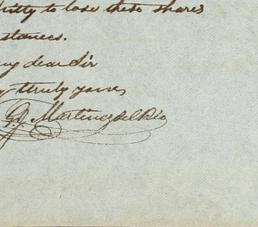 to lose these shares
stances.
my dear Sir
truly yours
Martinez del Rio